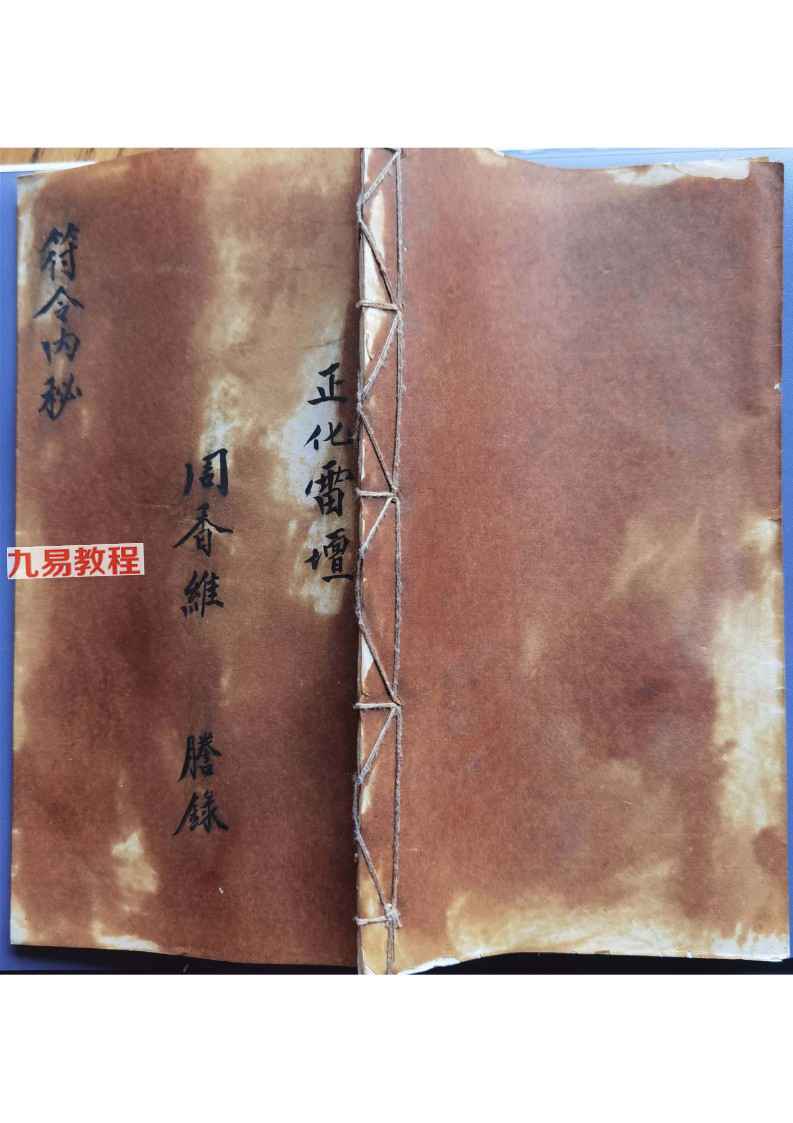 正化雷壇
周香維 謄錄
符令内秘
九易教程